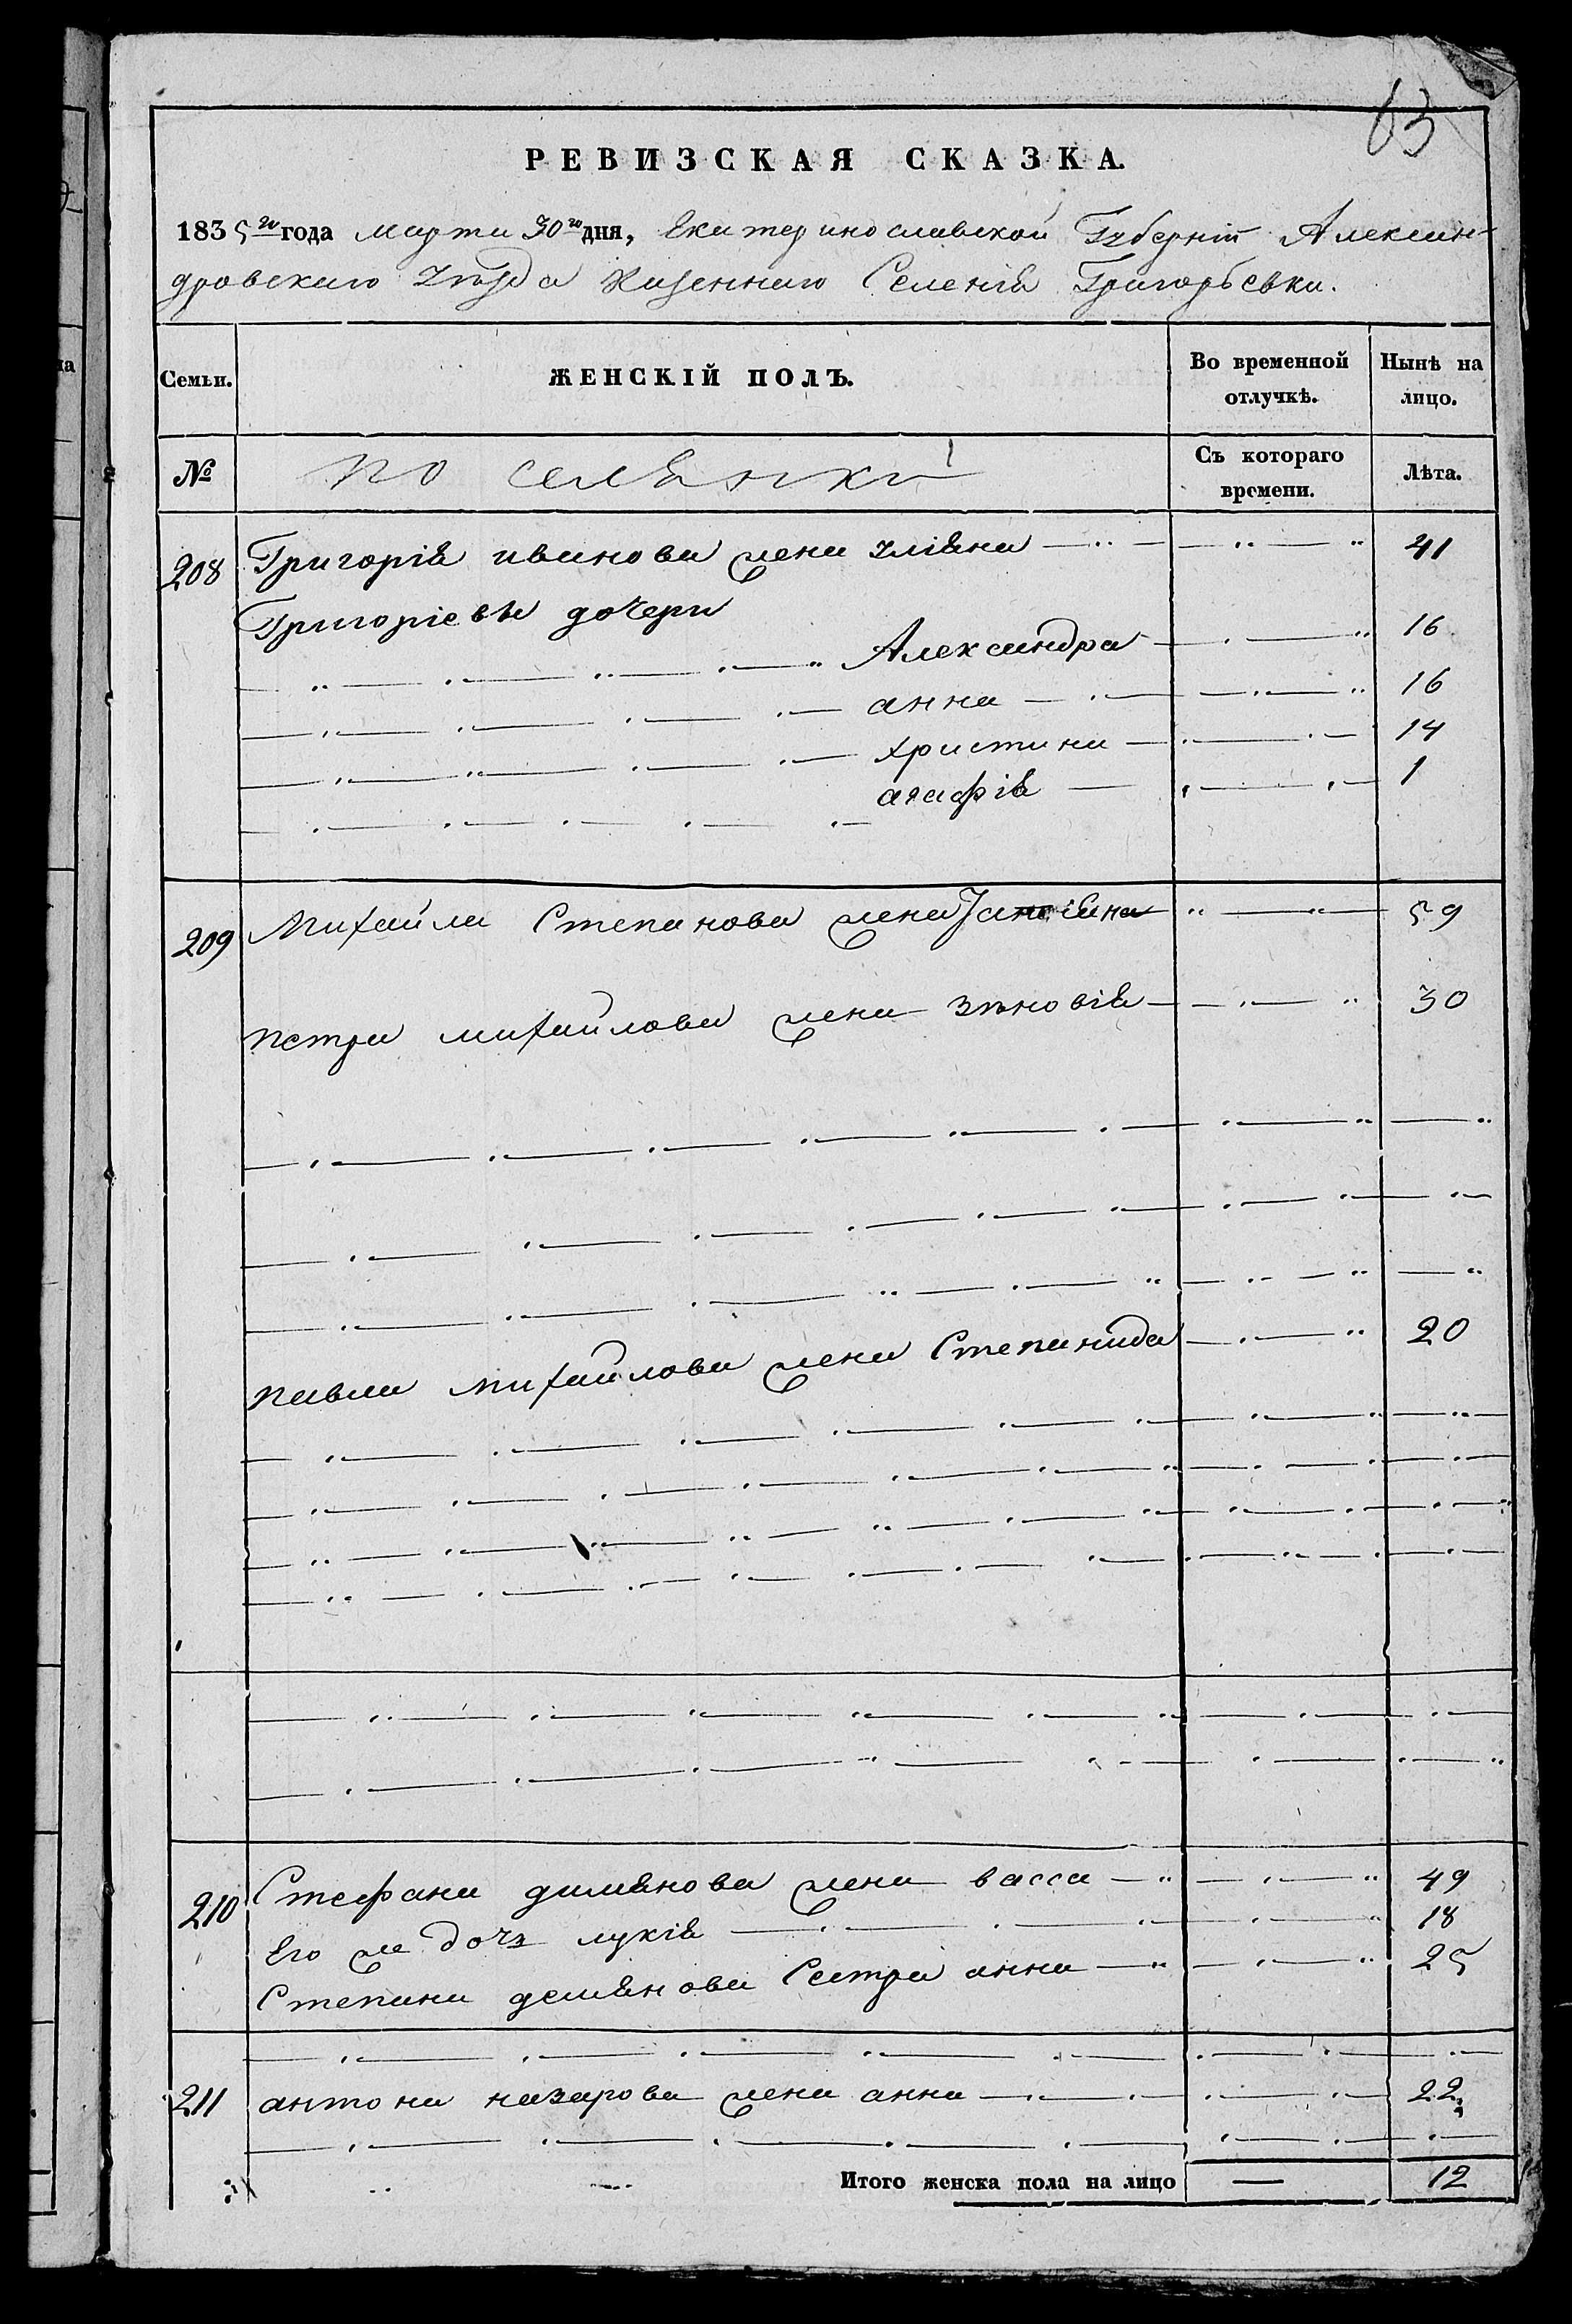 63
РЕВИЗСКАЯ СКАЗКА.
1835го года марта 30го дня, Екатеринославской Губерніи Алексан-
дровскаго Уѣзда Казеннаго Селенія Григорьевки.
Семьи. ЖЕНСКІЙ ПОЛЪ. Во временной отлучкѣ. Нынѣ на лицо.
№ поселянки Съ котораго времени. Лѣта.
208 Григорія иванова жена улiяна 41
Григоріевы дочери
Александра 16
анна 16
христина 14
агафія 1
209 Михайла Степанова жена 59
петра михайлова жена зѣновія 30
павла михайлова жена Степанида 20
210 Стефана дамянова жена васса 49
Его же дочъ лукія 18
Степана демянова Сестра анна 25
211 антона назарова жена анна 22
Итого женска пола на лицо — 12